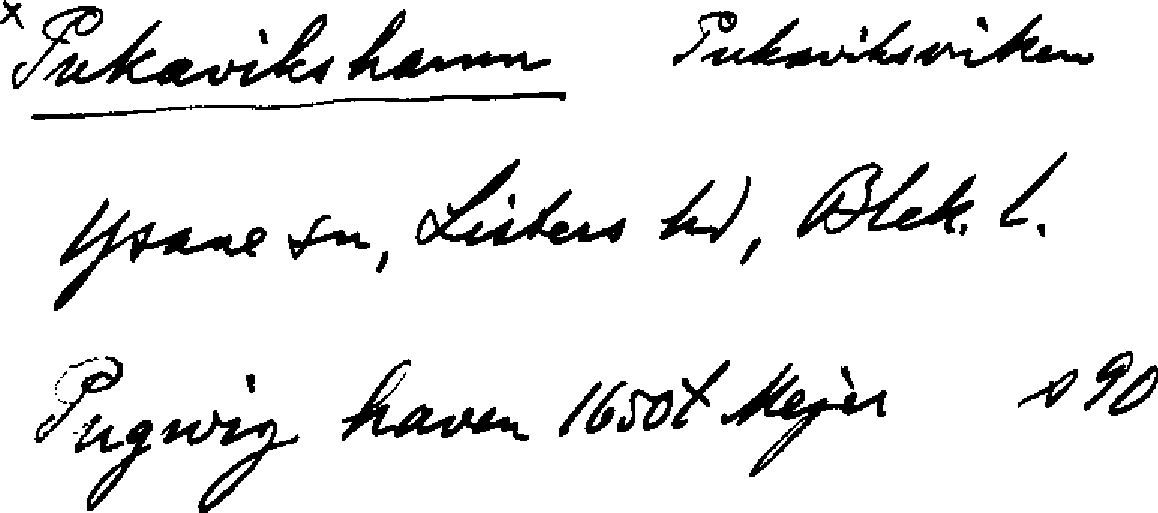 x Pukavikshamn Pukaviksviken
Ysane sn, Listers hd, Blek. l.
Pugwig haven 1650t Mejer s 90